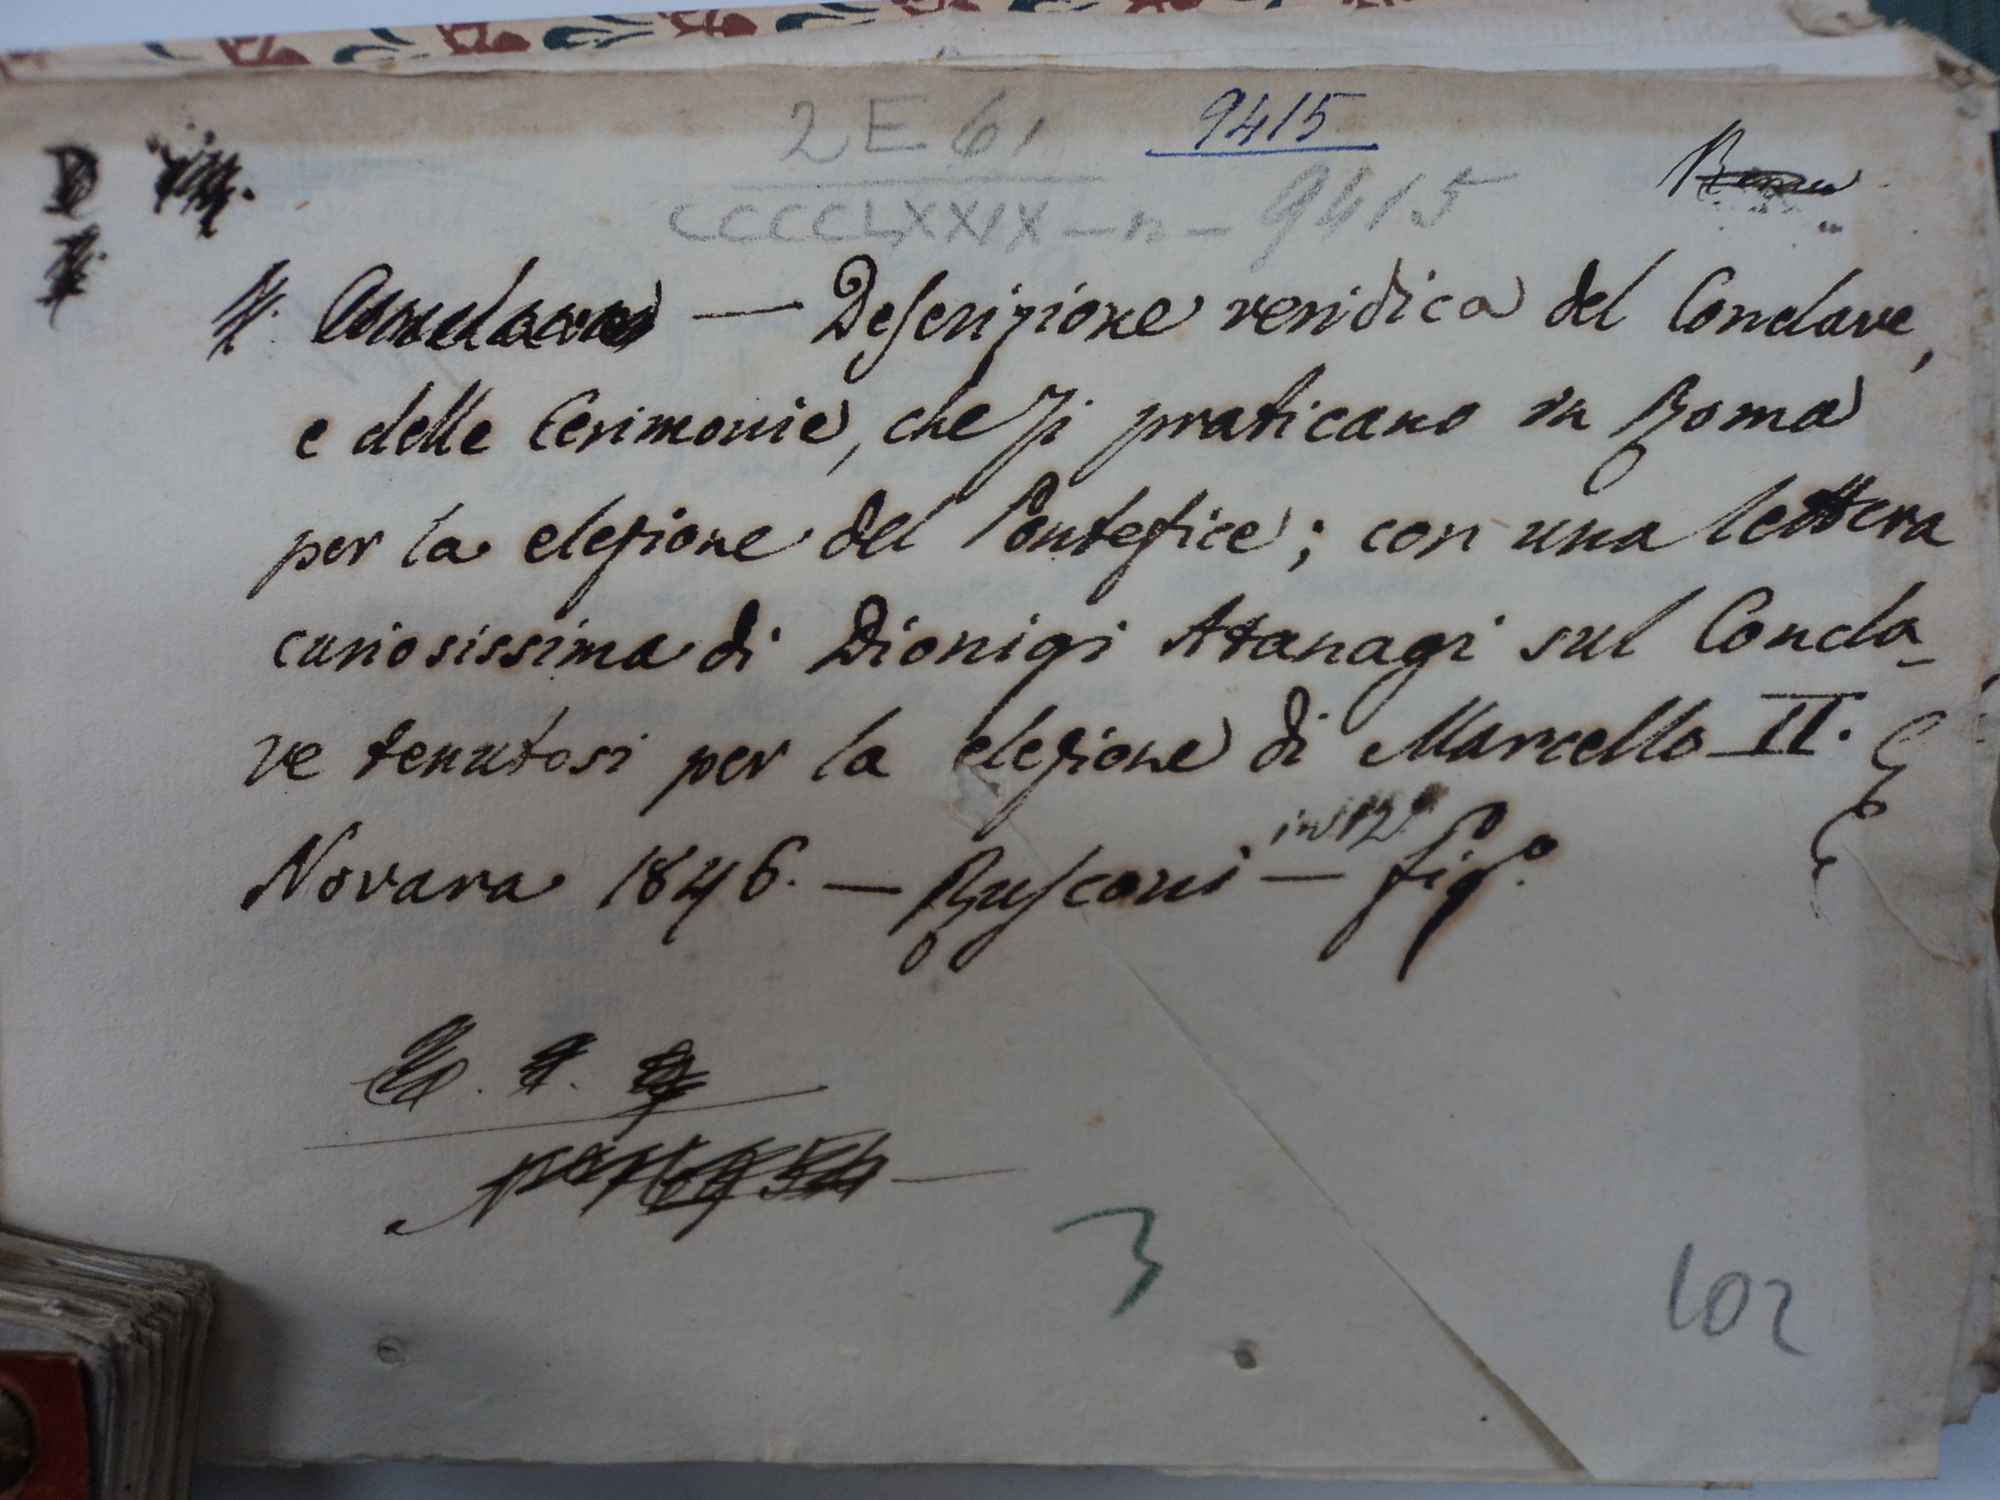 2 E 61 9415
Roma
CCCCLXXIX - n - 9415
Conclave — Descrizione veridica del Conclave,
e delle Cerimonie, che si praticano in Roma
per la elezione del Pontefice; con una lettera
curiosissima di Dionigi Atanagi sul Concla-
ve tenutosi per la elezione di Marcello II.
in 12°
Novara 1846. — Rusconi — fig.°
3
102